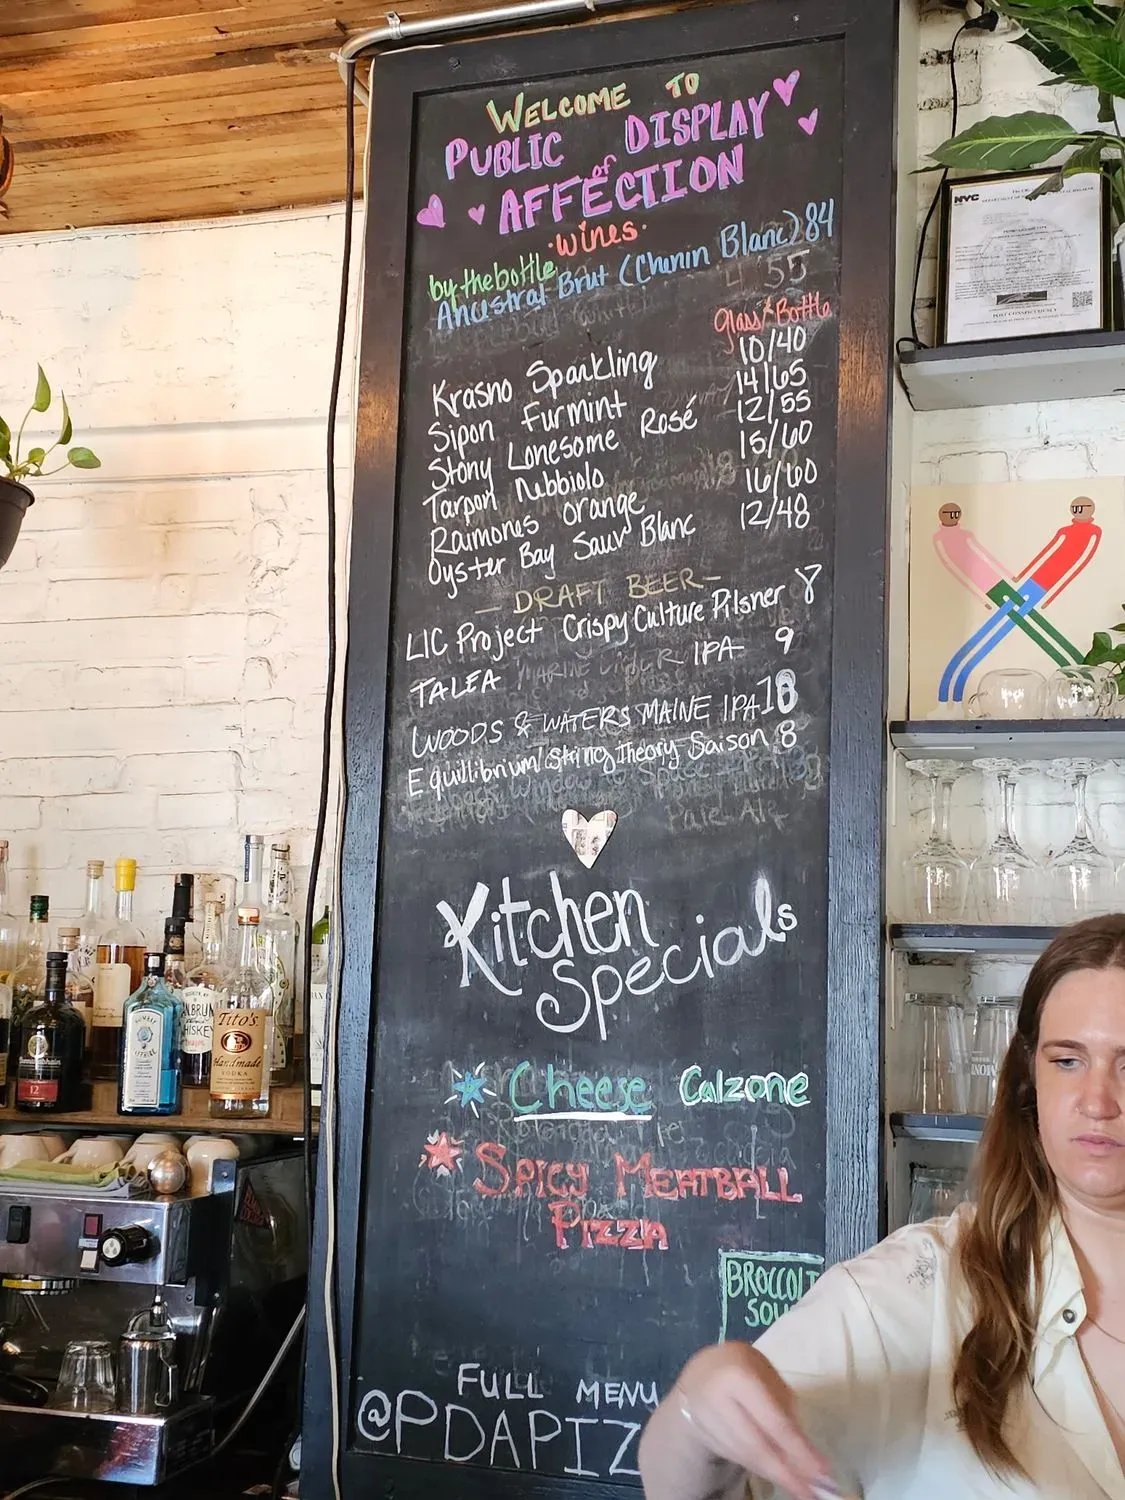 WELCOME TO
PUBLIC DISPLAY
of
AFFECTION
wines
by the bottle
Ancestral Brut (Chenin Blanc) 84
Glass/Bottle
Krasno Sparkling 10/40
Sipon Furmint 14/65
Stony Lonesome Rosé 12/55
Tarpon Nebbiolo 15/60
Raimones orange 16/60
Oyster Bay Sauv Blanc 12/48
DRAFT BEER
LIC Project Crispy Culture Pilsner 8
TALEA IPA 9
WOODS & WATERS MAINE IPA
Equilibrium/String Theory Saison 8
Kitchen
Specials
Cheese Calzone
SPICY MEATBALL
PIZZA
BROCCOLI
SOU
FULL MENU
@PDAPIZ
NYC
POST CONSPICUOUSLY
BOMBAY
Tito's
Handmade
VODKA
12